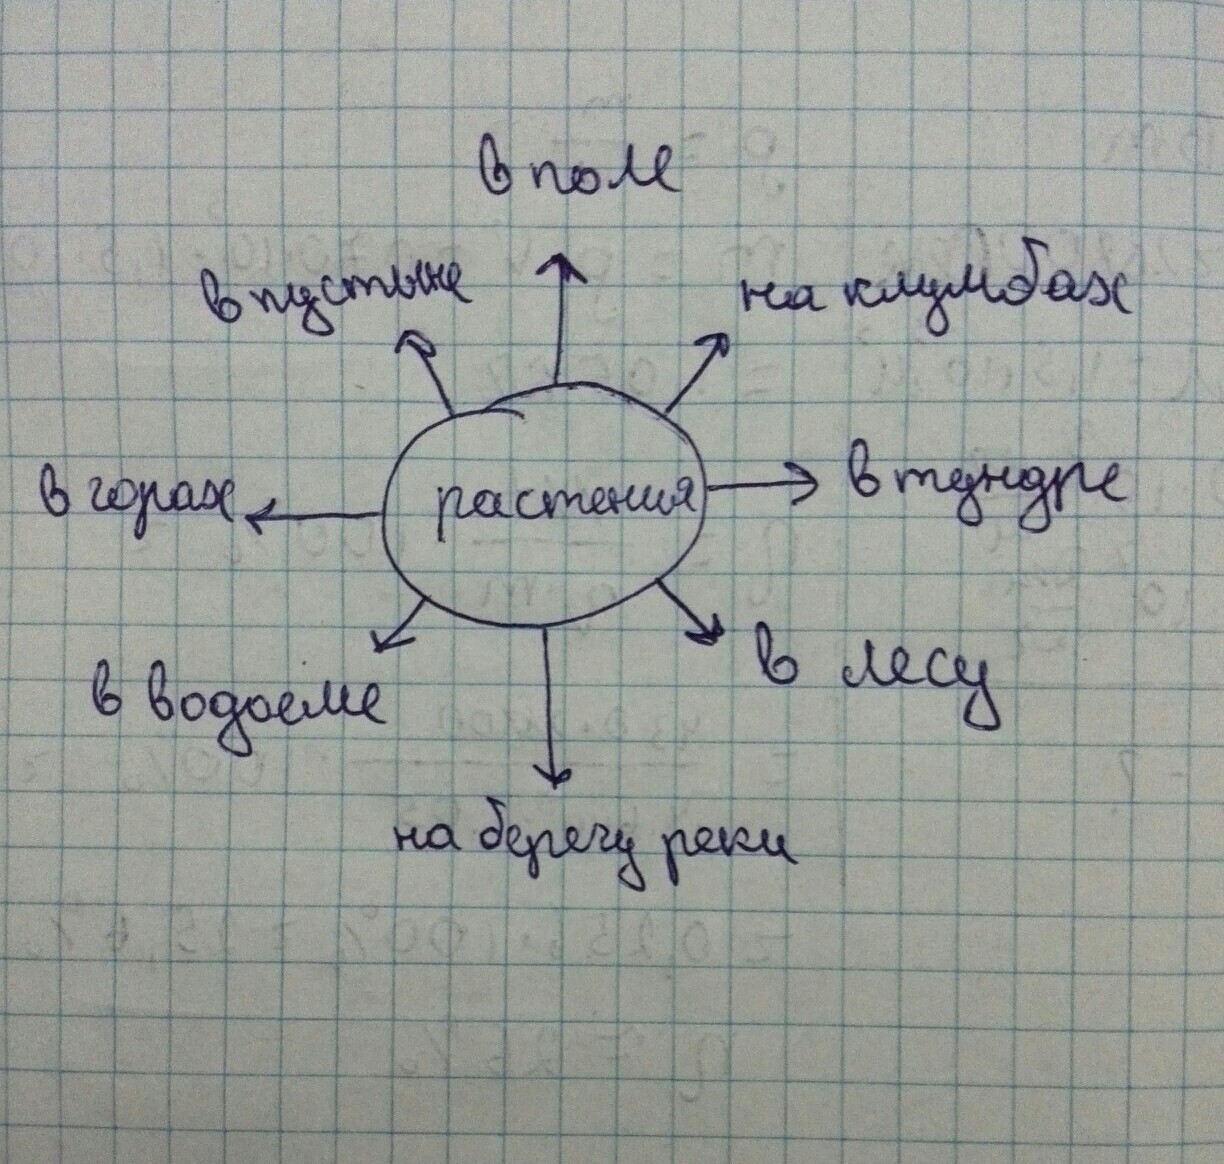 в поле
в пустыне
на клумбах
в горах
растения
в тундре
в водоеме
в лесу
на берегу реки